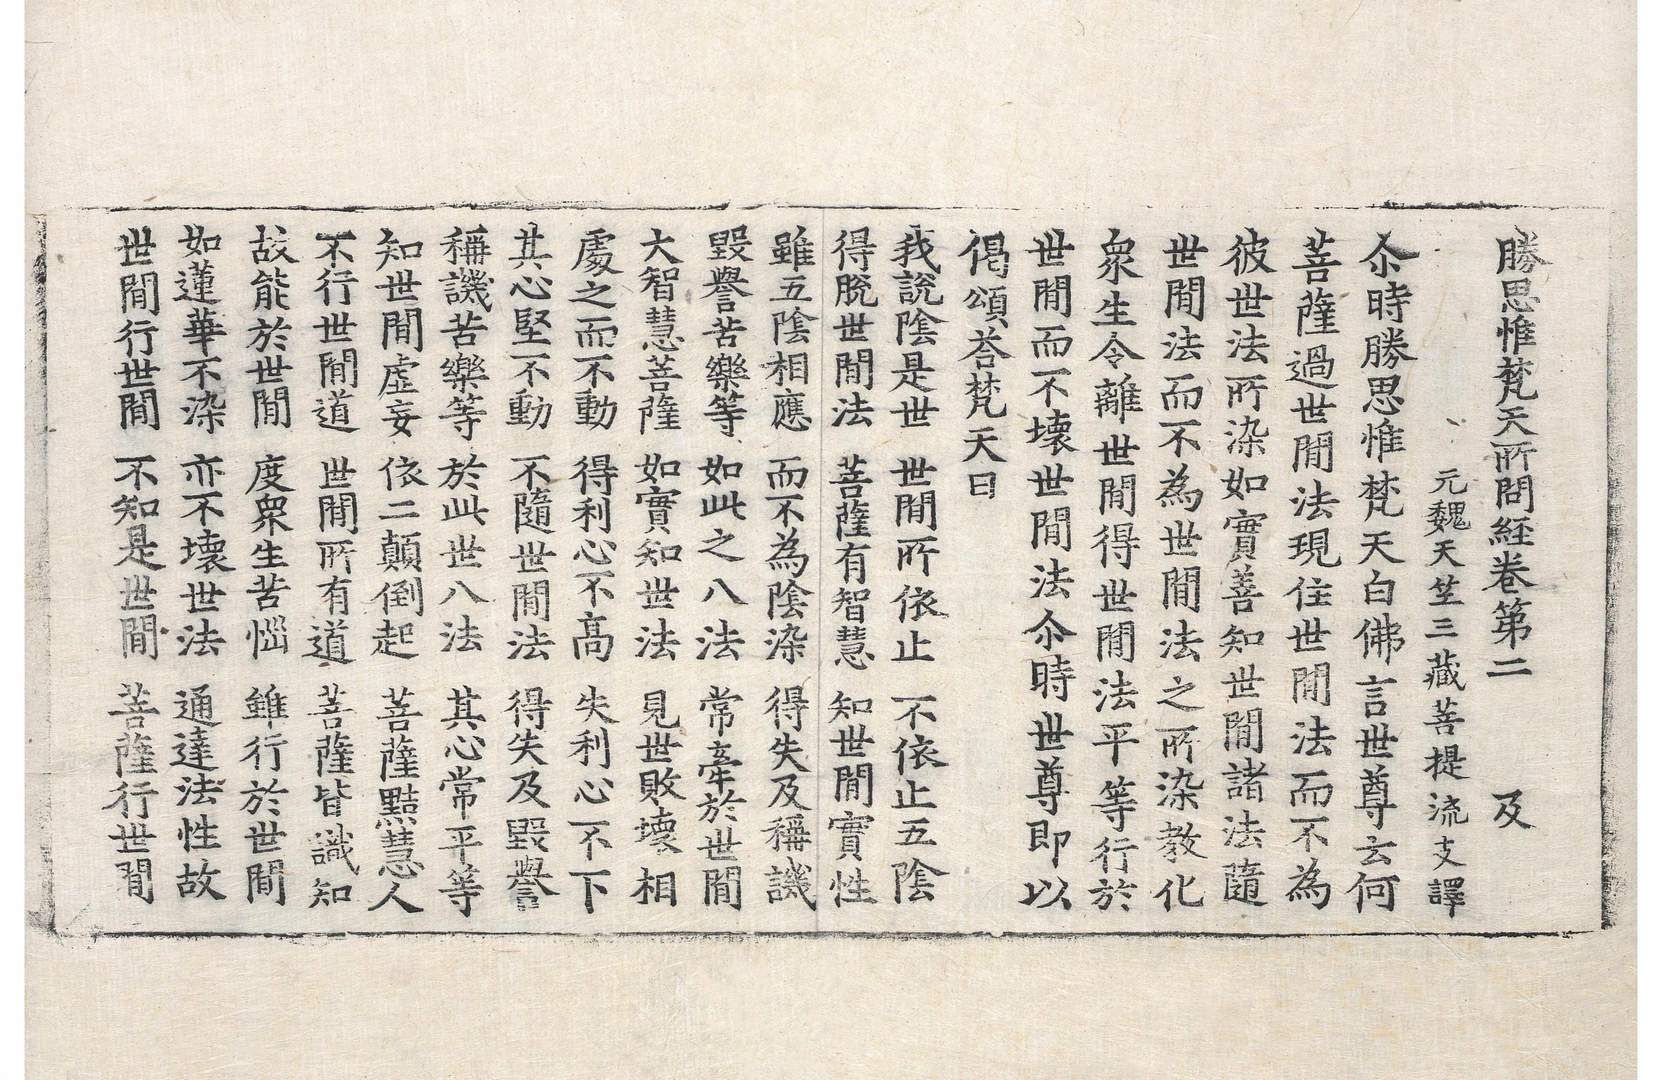 勝思惟梵天所問経卷第二 及
元魏天竺三藏菩提流支譯
尒時勝思惟梵天白佛言世尊云何
菩薩過世間法現住世間法而不為
彼世法所染如實善知世間諸法隨
世間法而不為世間法之所染教化
衆生令離世間得世間法平等行於
世間而不壞世間法尒時世尊即以
偈頌荅梵天曰
我說陰是世 世間所依止 不依止五陰
得脫世間法 菩薩有智慧 知世間實性
雖五陰相應 而不為陰染 得失及稱譏
毀譽苦樂等 如此之八法 常牽於世間
大智慧菩薩 如實知世法 見世敗壞相
處之而不動 得利心不高 失利心不下
其心堅不動 不隨世間法 得失及毀譽
稱譏苦樂等 於此世八法 其心常平等
知世間虛妄 依二顛倒起 菩薩黠慧人
不行世間道 世間所有道 菩薩皆識知
故能於世間 度衆生苦惱 雖行於世間
如蓮華不染 亦不壞世法 通達法性故
世間行世間 不知是世間 菩薩行世間